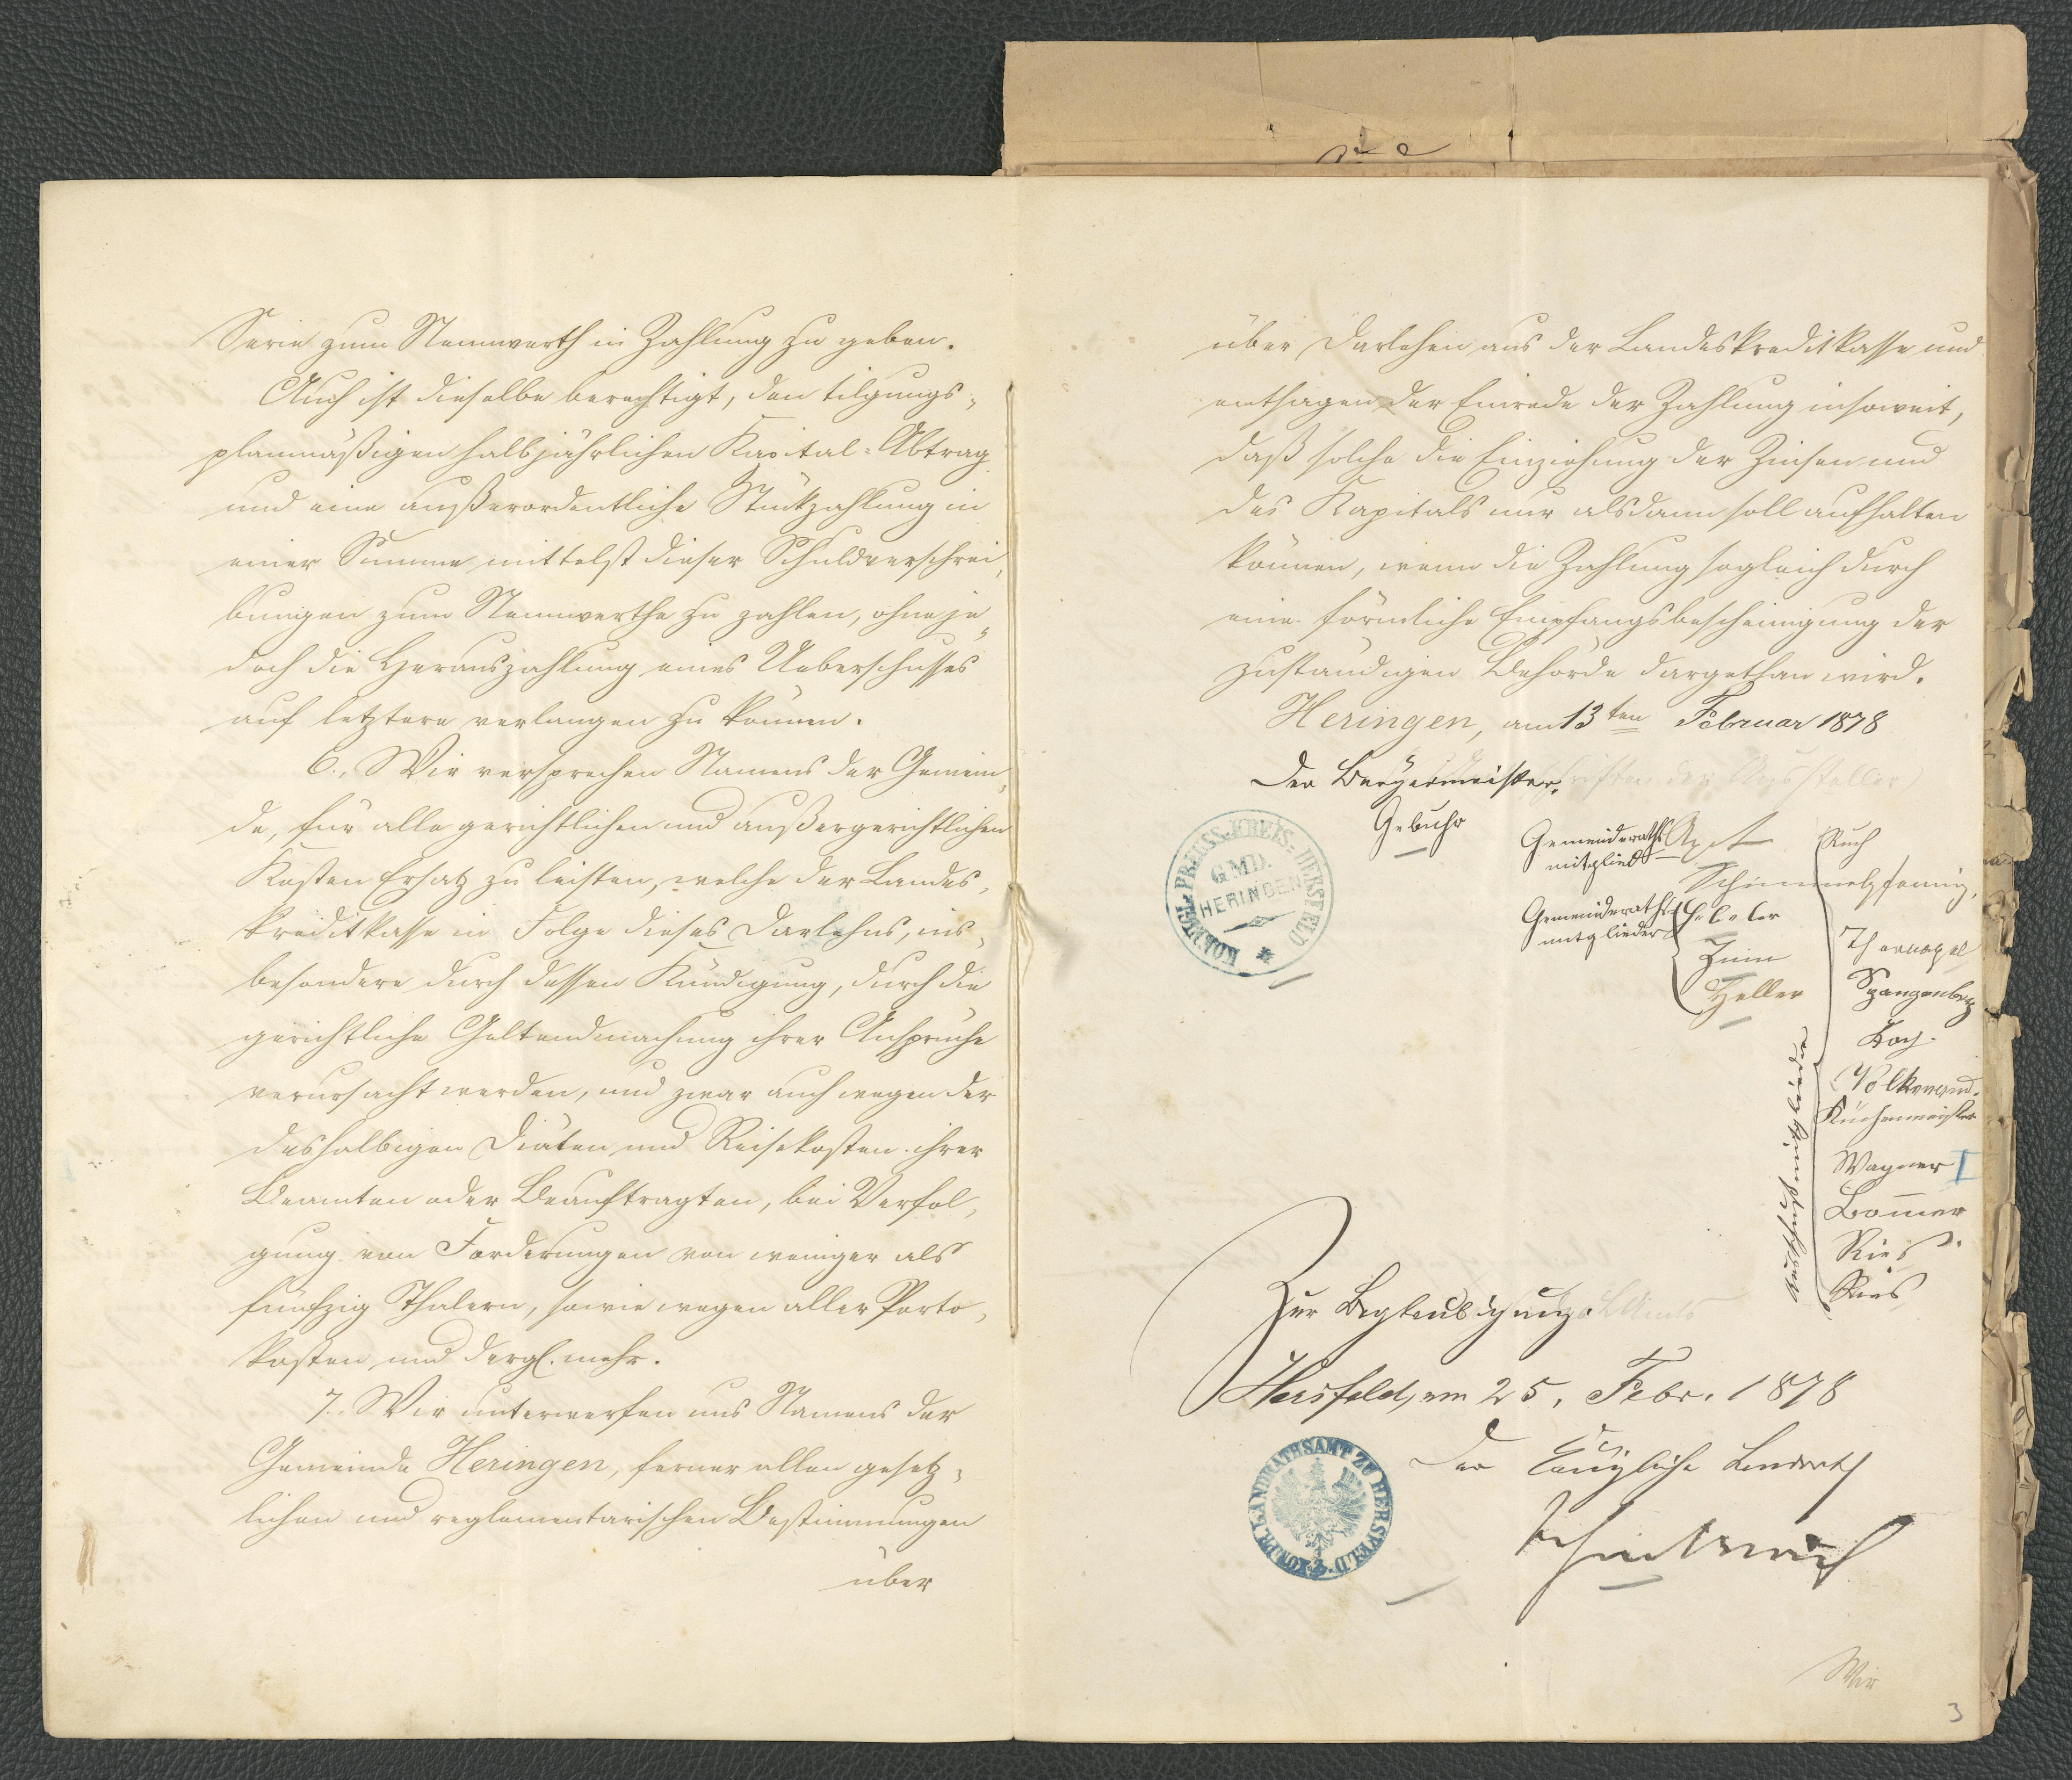 Serie zum Nennwerth in Zahlung zu geben.
Auch ist dieselbe berechtigt, den tilgungs-
planmäßigen halbjährlichen Kapital-Abtrag
und eine außerordentliche Stückzahlung in
einer Summe mittelst dieser Schuldverschrei-
bungen zum Nennwerthe zu zahlen, ohne je-
doch die Herauszahlung eines Ueberschusses
auf letztere verlangen zu können.
6., Wir versprechen Namens der Gemein-
de, für alle gerichtlichen und außergerichtlichen
Kosten Ersatz zu leisten, welche der Landes-
kreditkasse in Folge dieses Darlehns, ins-
besondere durch dessen Kündigung, durch die
gerichtliche Geltendmachung ihrer Ansprüche
verursacht werden, und zwar auch wegen der
deshalbigen Diäten und Reisekosten ihrer
Beamten oder Beauftragten, bei Verfol-
gung von Forderungen von weniger als
fünfzig Thalern, sowie wegen aller Porto-
kosten und dergl. mehr.
7. Wir unterwerfen uns Namens der
Gemeinde Heringen, ferner allen gesetz-
lichen und reglementarischen Bestimmungen
über
über Darlehen aus der Landeskreditkasse und
entsagen der Einrede der Zahlung insoweit,
daß solche die Einziehung der Zinsen und
des Kapitals nur alsdann soll aufhalten
können, wenn die Zahlung sogleich durch
eine förmliche Empfangsbescheinigung der
zuständigen Behörde dargethan wird.
Heringen, am 13ten Februar 1878
Der Bürgermeister
Gebuhr
KOENIGL. PREUSS. KREIS-HERSFELD
GMD.
HERINGEN
Gemeinderaths
mitglied
Gemeinderaths
mitglieder
Zinn
Heller
Ausschußmitglieder
Ruch
Schimmelpfennig,
Spangenberg
Koch.
Volkenand.
Küchenmeister
Wagner I
Bommer
Ries.
Ries
Zur Beglaubigung.
Hersfeld, am 25. Febr. 1878
Der Königliche Landrath
KÖN. PR. LANDRATHSAMT ZU HERSFELD
Wir
3